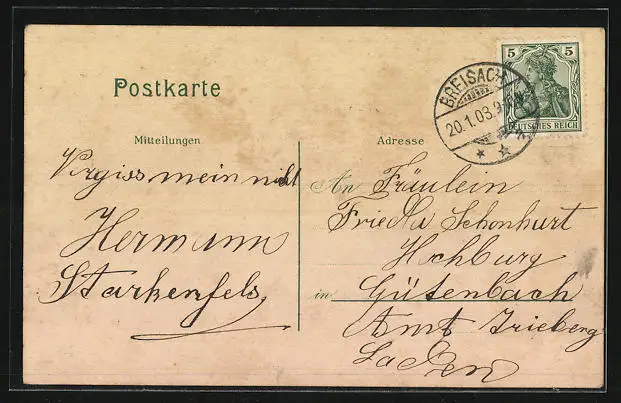 Postkarte
5 5
DEUTSCHES REICH
BREISACH
20.1.08.9
Mitteilungen
Adresse
Vergiss mein nicht
Hermann
Starkenfels
An Fräulein
Frieda Schonhurt
Hochburg
in Gütenbach
Amt Trieberg
Baden